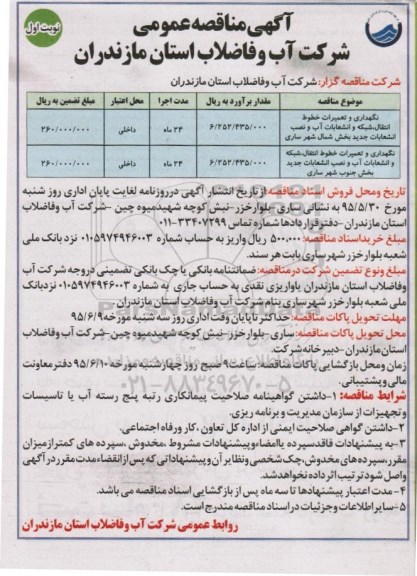 نوبت اول
آگهی مناقصه عمومی
شرکت آب و فاضلاب استان مازندران
شرکت مناقصه گزار: شرکت آب وفاضلاب استان مازندران
موضوع مناقصه	مقدار برآورد به ریال	مدت اجرا	محل اعتبار	مبلغ تضمین به ریال
نگهداری و تعمیرات خطوط انتقال،شبکه و انشعابات آب و نصب انشعابات جدید بخش شمال شهر ساری	۶/۲۵۲/۴۳۵/۰۰۰	۲۴ ماه	داخلی	۲۶۰/۰۰۰/۰۰۰
نگهداری و تعمیرات خطوط انتقال،شبکه و انشعابات آب و نصب انشعابات جدید بخش جنوب شهر ساری	۶/۲۵۲/۴۳۵/۰۰۰	۲۴ ماه	داخلی	۲۶۰/۰۰۰/۰۰۰
تاریخ ومحل فروش اسناد مناقصه:ازتاریخ انتشار آگهی درروزنامه لغایت پایان اداری روز شنبه
مورخ ۹۵/۵/۳۰ به نشانی ساری-بلوارخزر-نبش کوچه شهیدمیوه چین -شرکت آب وفاضلاب
استان مازندران-دفترقراردادها شماره تماس ۳۳۴۰۷۲۹۹-۰۱۱
مبلغ خریداسناد مناقصه: ۵۰۰,۰۰۰ ریال واریز به حساب شماره ۰۱۰۵۹۷۴۹۴۶۰۰۳ نزد بانک ملی
شعبه بلوارخزر شهرساری یابت هر سند.
مبلغ ونوع تضمین شرکت درمناقصه:ضمانتنامه بانکی یا چک بانکی تضمینی دروجه شرکت آب
وفاضلاب استان مازندران یاواریزی نقدی به حساب جاری به شماره ۰۱۰۵۹۷۴۹۴۶۰۰۳ نزدبانک
ملی شعبه بلوارخزر شهرساری بنام شرکت آب وفاضلاب استان مازندران
مهلت تحویل پاکات مناقصه:حداکثر تاپایان وقت اداری روز سه شنبه مورخه ۹۵/۶/۹
محل تحویل پاکات مناقصه:ساری-بلوارخزر-نبش کوچه شهیدمیوه چین-شرکت آب وفاضلاب
استان مازندران-دبیرخانه شرکت.
زمان ومحل بازگشایی پاکات مناقصه: ساعت۹ صبح روز چهارشنبه مورخه ۹۵/۶/۱۰ دفترمعاونت
مالی وپشتیبانی.
شرایط مناقصه: ۱-داشتن گواهینامه صلاحیت پیمانکاری رتبه پنج رسته آب یا تاسیسات
وتجهیزات از سازمان مدیریت و برنامه ریزی.
۲-داشتن گواهی صلاحیت ایمنی از اداره کل تعاون ،کار ورفاه اجتماعی.
۳-به پیشنهادات فاقدسپرده یاامضاءوپیشنهادات مشروط ،مخدوش ،سپرده های کمترازمیزان
مقرر،سپرده های مخدوش،چک شخصی ونظایر آن وپیشنهاداتی که پس ازانقضاء مدت مقرر در آگهی
واصل شود ترتیب اثر داده نخواهدشد.
۴-مدت اعتبار پیشنهادها تا سه ماه پس از بازگشایی اسناد مناقصه می باشد.
۵-سایر اطلاعات وجزئیات دراسناد مناقصه مندرج است.
روابط عمومی شرکت آب وفاضلاب استان مازندران
۰۲۱-۸۸۳۴۹۶۷۰-۵